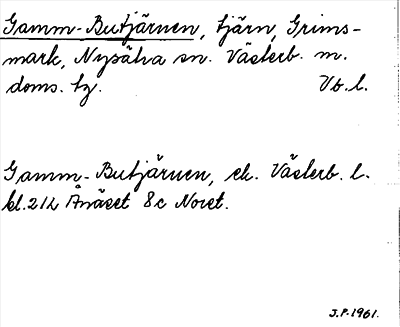 Gamm-Butjärnen, tjärn, Grims-
mark, Nysätra sn. Västerb. m.
doms. tg. Vb. l.
Gamm-Butjärnen, ek. Västerb. l.
bl. 212 Ånäset 8c Noret.
J.P. 1961.